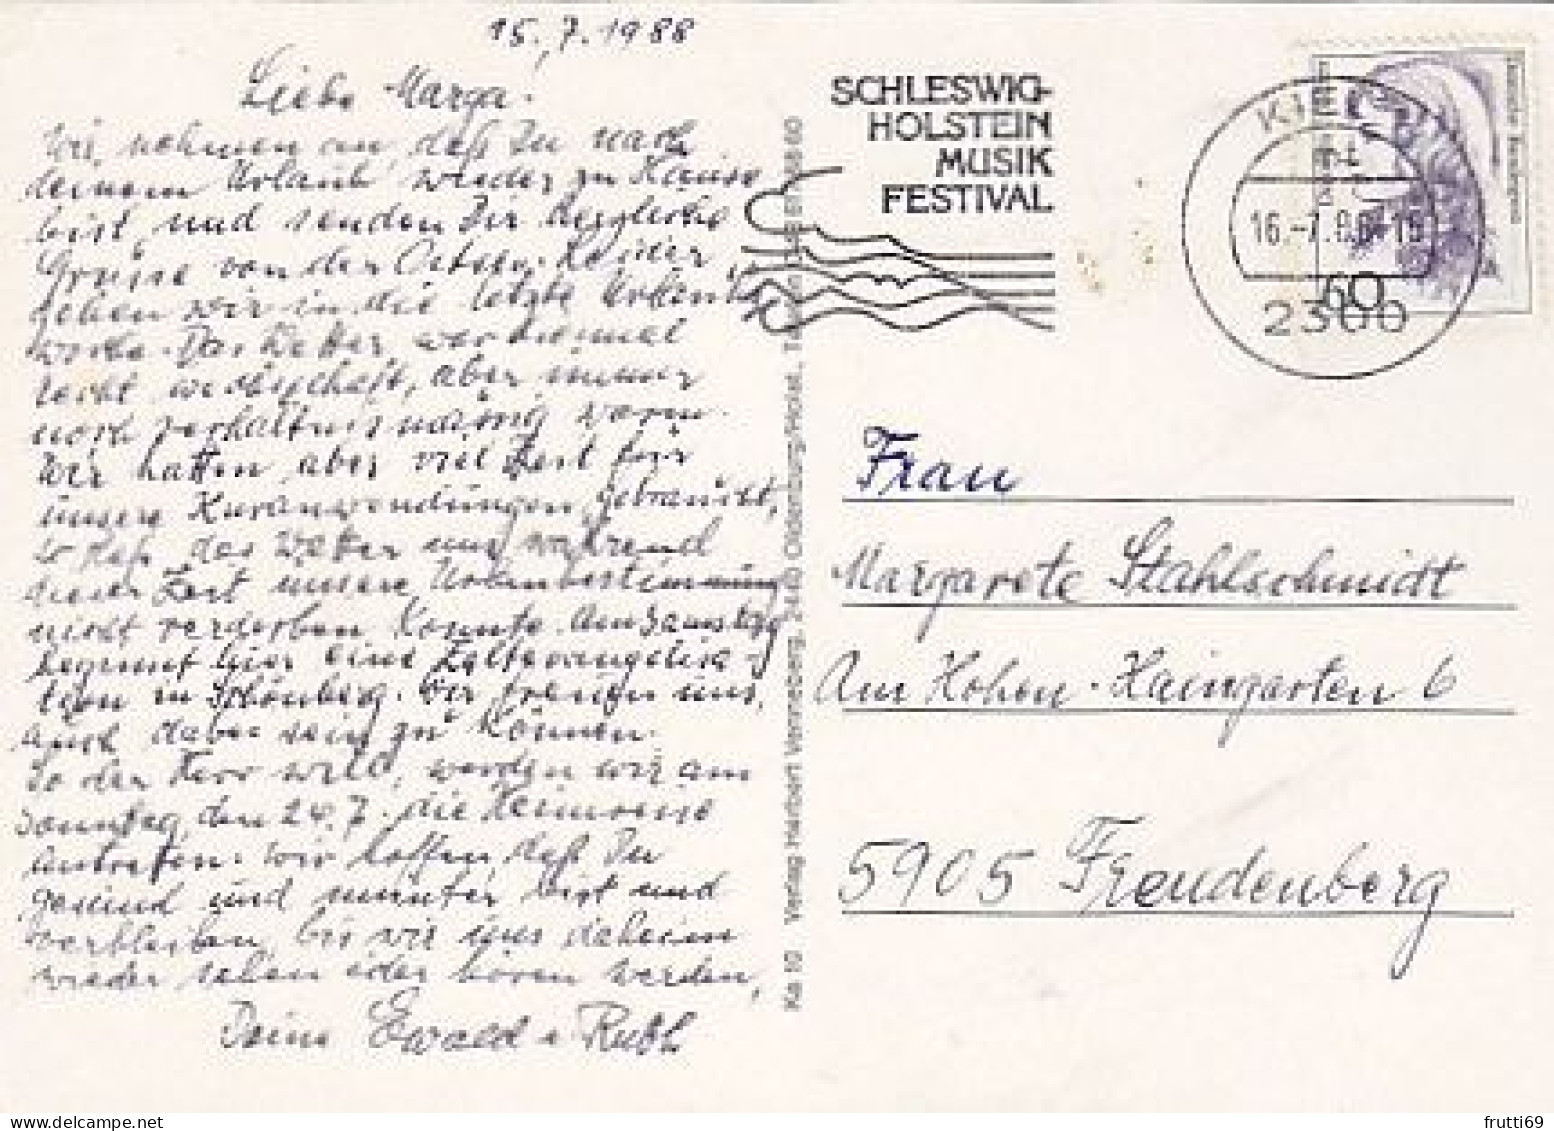 15.7.1988
Liebe Marga!
Wir nehmen an, daß Du nach
deinem Urlaub wieder zu Hause
bist, und senden Dir herzliche
Grüsse von der Ostsee. Leider
gehen wir in die letzte Urlaubs
woche. Das Wetter war diesmal
recht wechselhaft, aber immer
noch verhältnismässig warm.
Wir hatten aber viel Zeit für
unsere Kuranwendungen gebraucht,
so daß das Wetter uns während
dieser Zeit unsere Urlaubsstimmung
nicht verderben konnte. Am Samstag
beginnt hier eine Zeltevangelisa-
tion in Schönberg. Wir freuen uns,
auch dabei sein zu können.
So der Herr will, werden wir am
Sonntag, den 24.7. die Heimreise
antreten. Wir hoffen, daß Du
gesund und munter bist und
verbleiben, bis wir uns daheim
wieder sehen oder hören werden,
Deine Ewald u. Ruth
Ka 10 Verlag Herbert Venneberg, 2440 Oldenburg/Holst.,
SCHLESWIG-
HOLSTEIN
MUSIK
FESTIVAL
KIEL
16.-7.88-16
2300
60
Deutsche Bundespost
Frau
Margarete Stahlschmidt
Am Hohen-Haingarten 6
5905 Freudenberg
frutti69